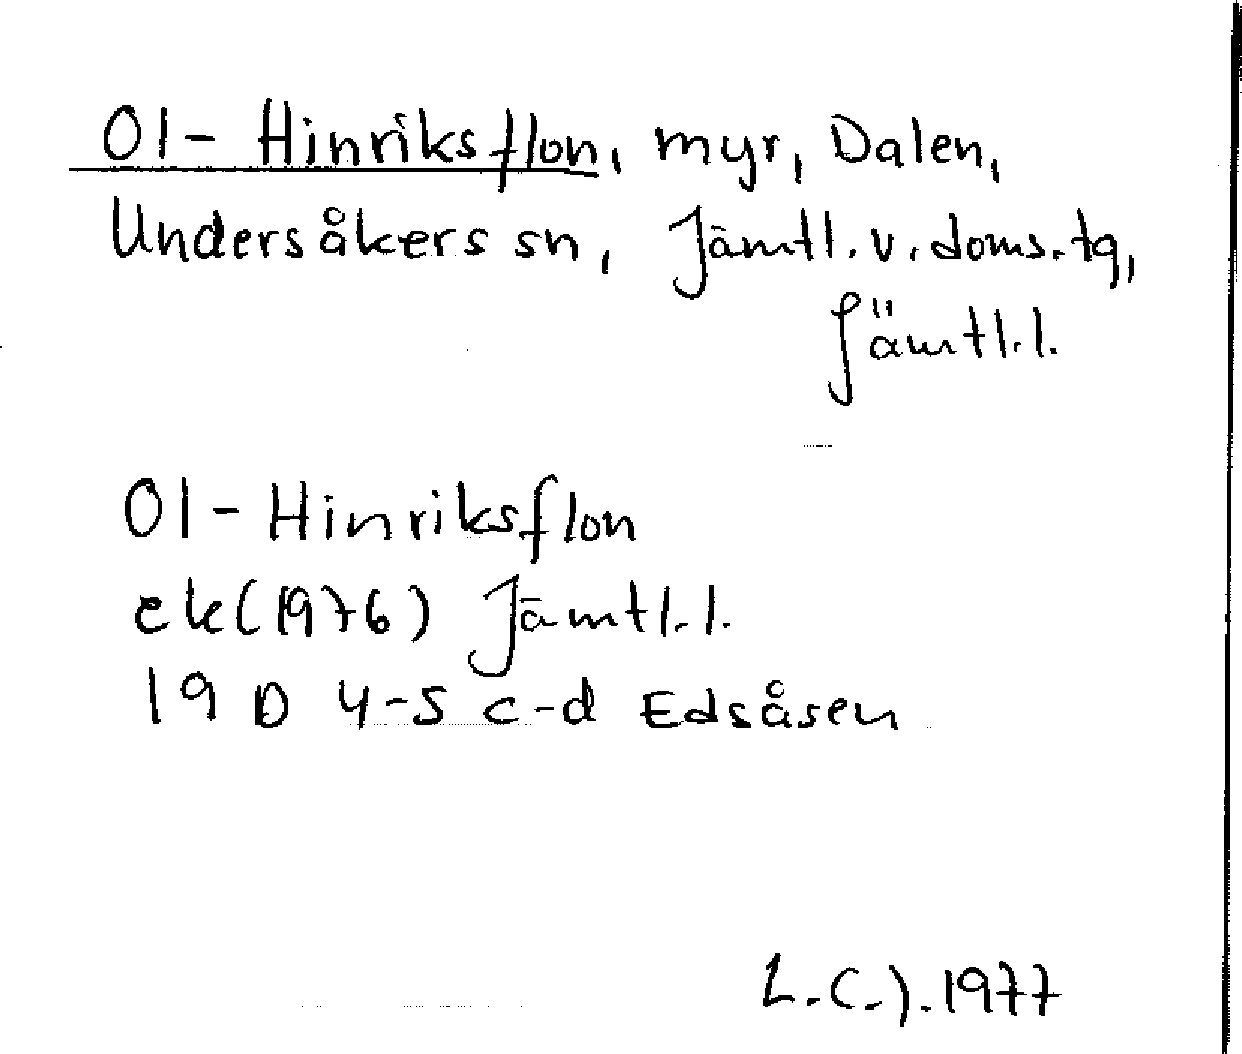 Ol-Hinriksflon, myr, Dalen,
Undersåkers sn, Jämtl. v. doms. tg,
Jämtl. l.
Ol-Hinriksflon
ek (1976) Jämtl. l.
19 D 4-5 c-d Edsåsen
L.C.J. 1977